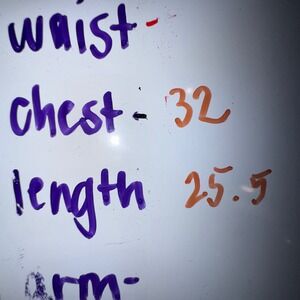 waist-
chest- 32
length 25.5
arm-